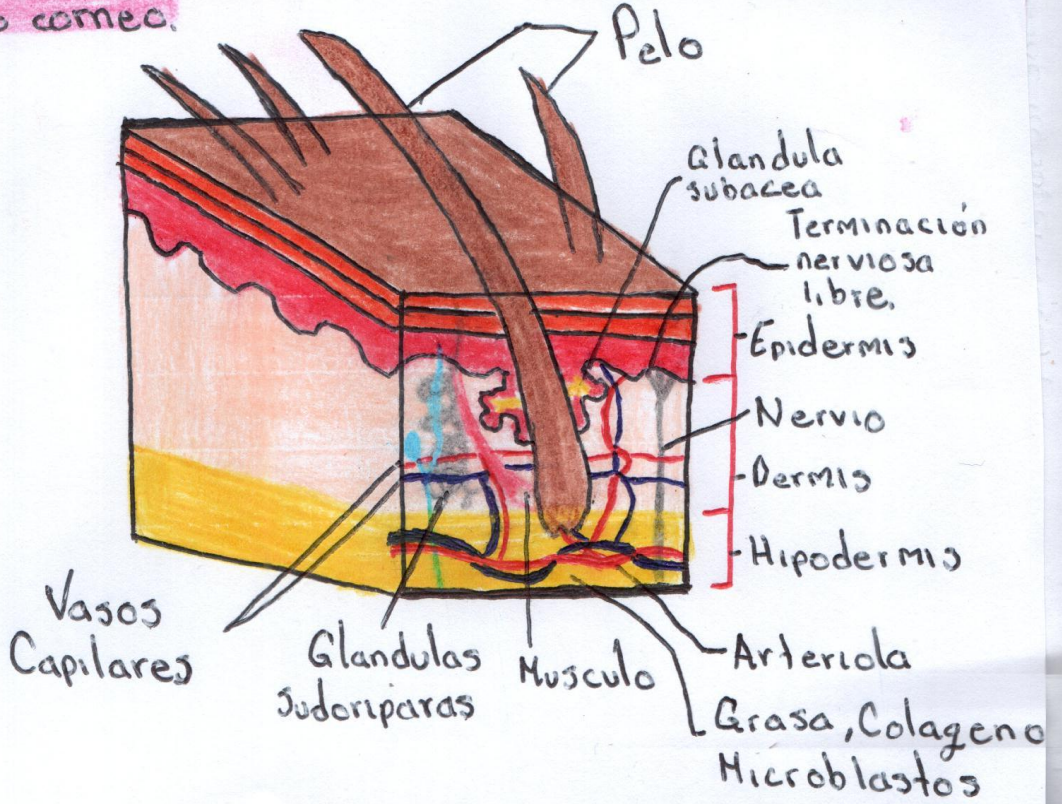 o corneo.
Pelo
Glandula
subacea
Terminación
nerviosa
libre.
Epidermis
Nervio
Dermis
Hipodermis
Vasos
Capilares
Glandulas
sudoriparas
Musculo
Arteriola
Grasa, Colageno
Microblastos